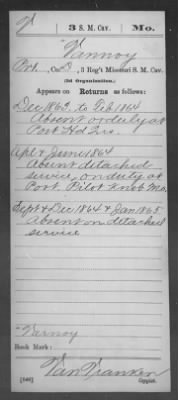 V | 3 S. M. Cav. | Mo.
Vannoy
Pvt., Co. B, 3 Reg't Missouri S. M. Cav.
(2d Organization.)
Appears on Returns as follows:
Dec 1863, to Feb 1864
Absent orderly at
Post Hd Qrs.
Apl & June 1864
Absent detached
service, on duty at
Post. Pilot Knob Mo.
Sept & Dec 1864 & Jan 1865
Absent on detached
service
"Varnoy
Book Mark:
Van Vranken
(546) Copyist.